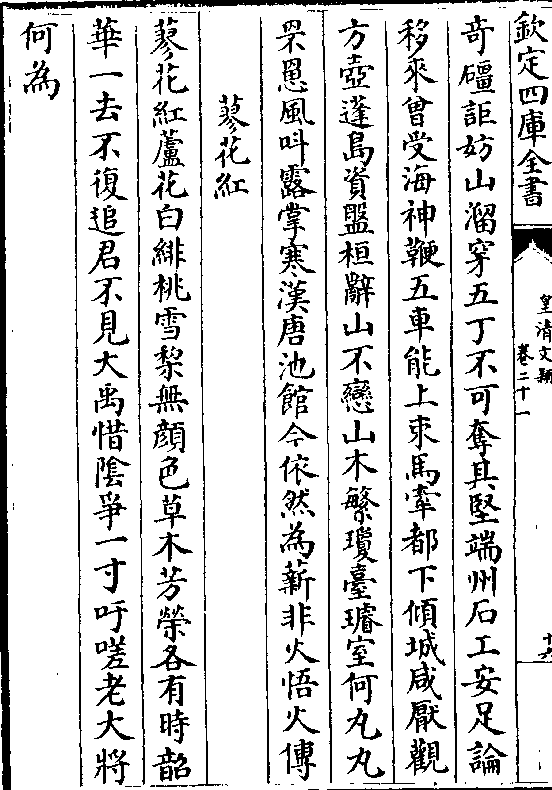 欽定四庫全書
皇清文穎
卷二十一
十六
奇礓詎妨山溜穿五丁不可奪其堅端州石工安足論
移來曾受海神鞭五車能上束馬牽都下傾城咸厭觀
方壺蓬島資盤桓辭山不戀山木繁瓊臺璿室何丸丸
罘罳風叫露掌寒漢唐池館今依然為薪非火悟火傳
蓼花紅
蓼花紅蘆花白緋桃雪梨無顔色草木芳榮各有時韶
華一去不復追君不見大禹惜隂爭一寸吁嗟老大將
何為